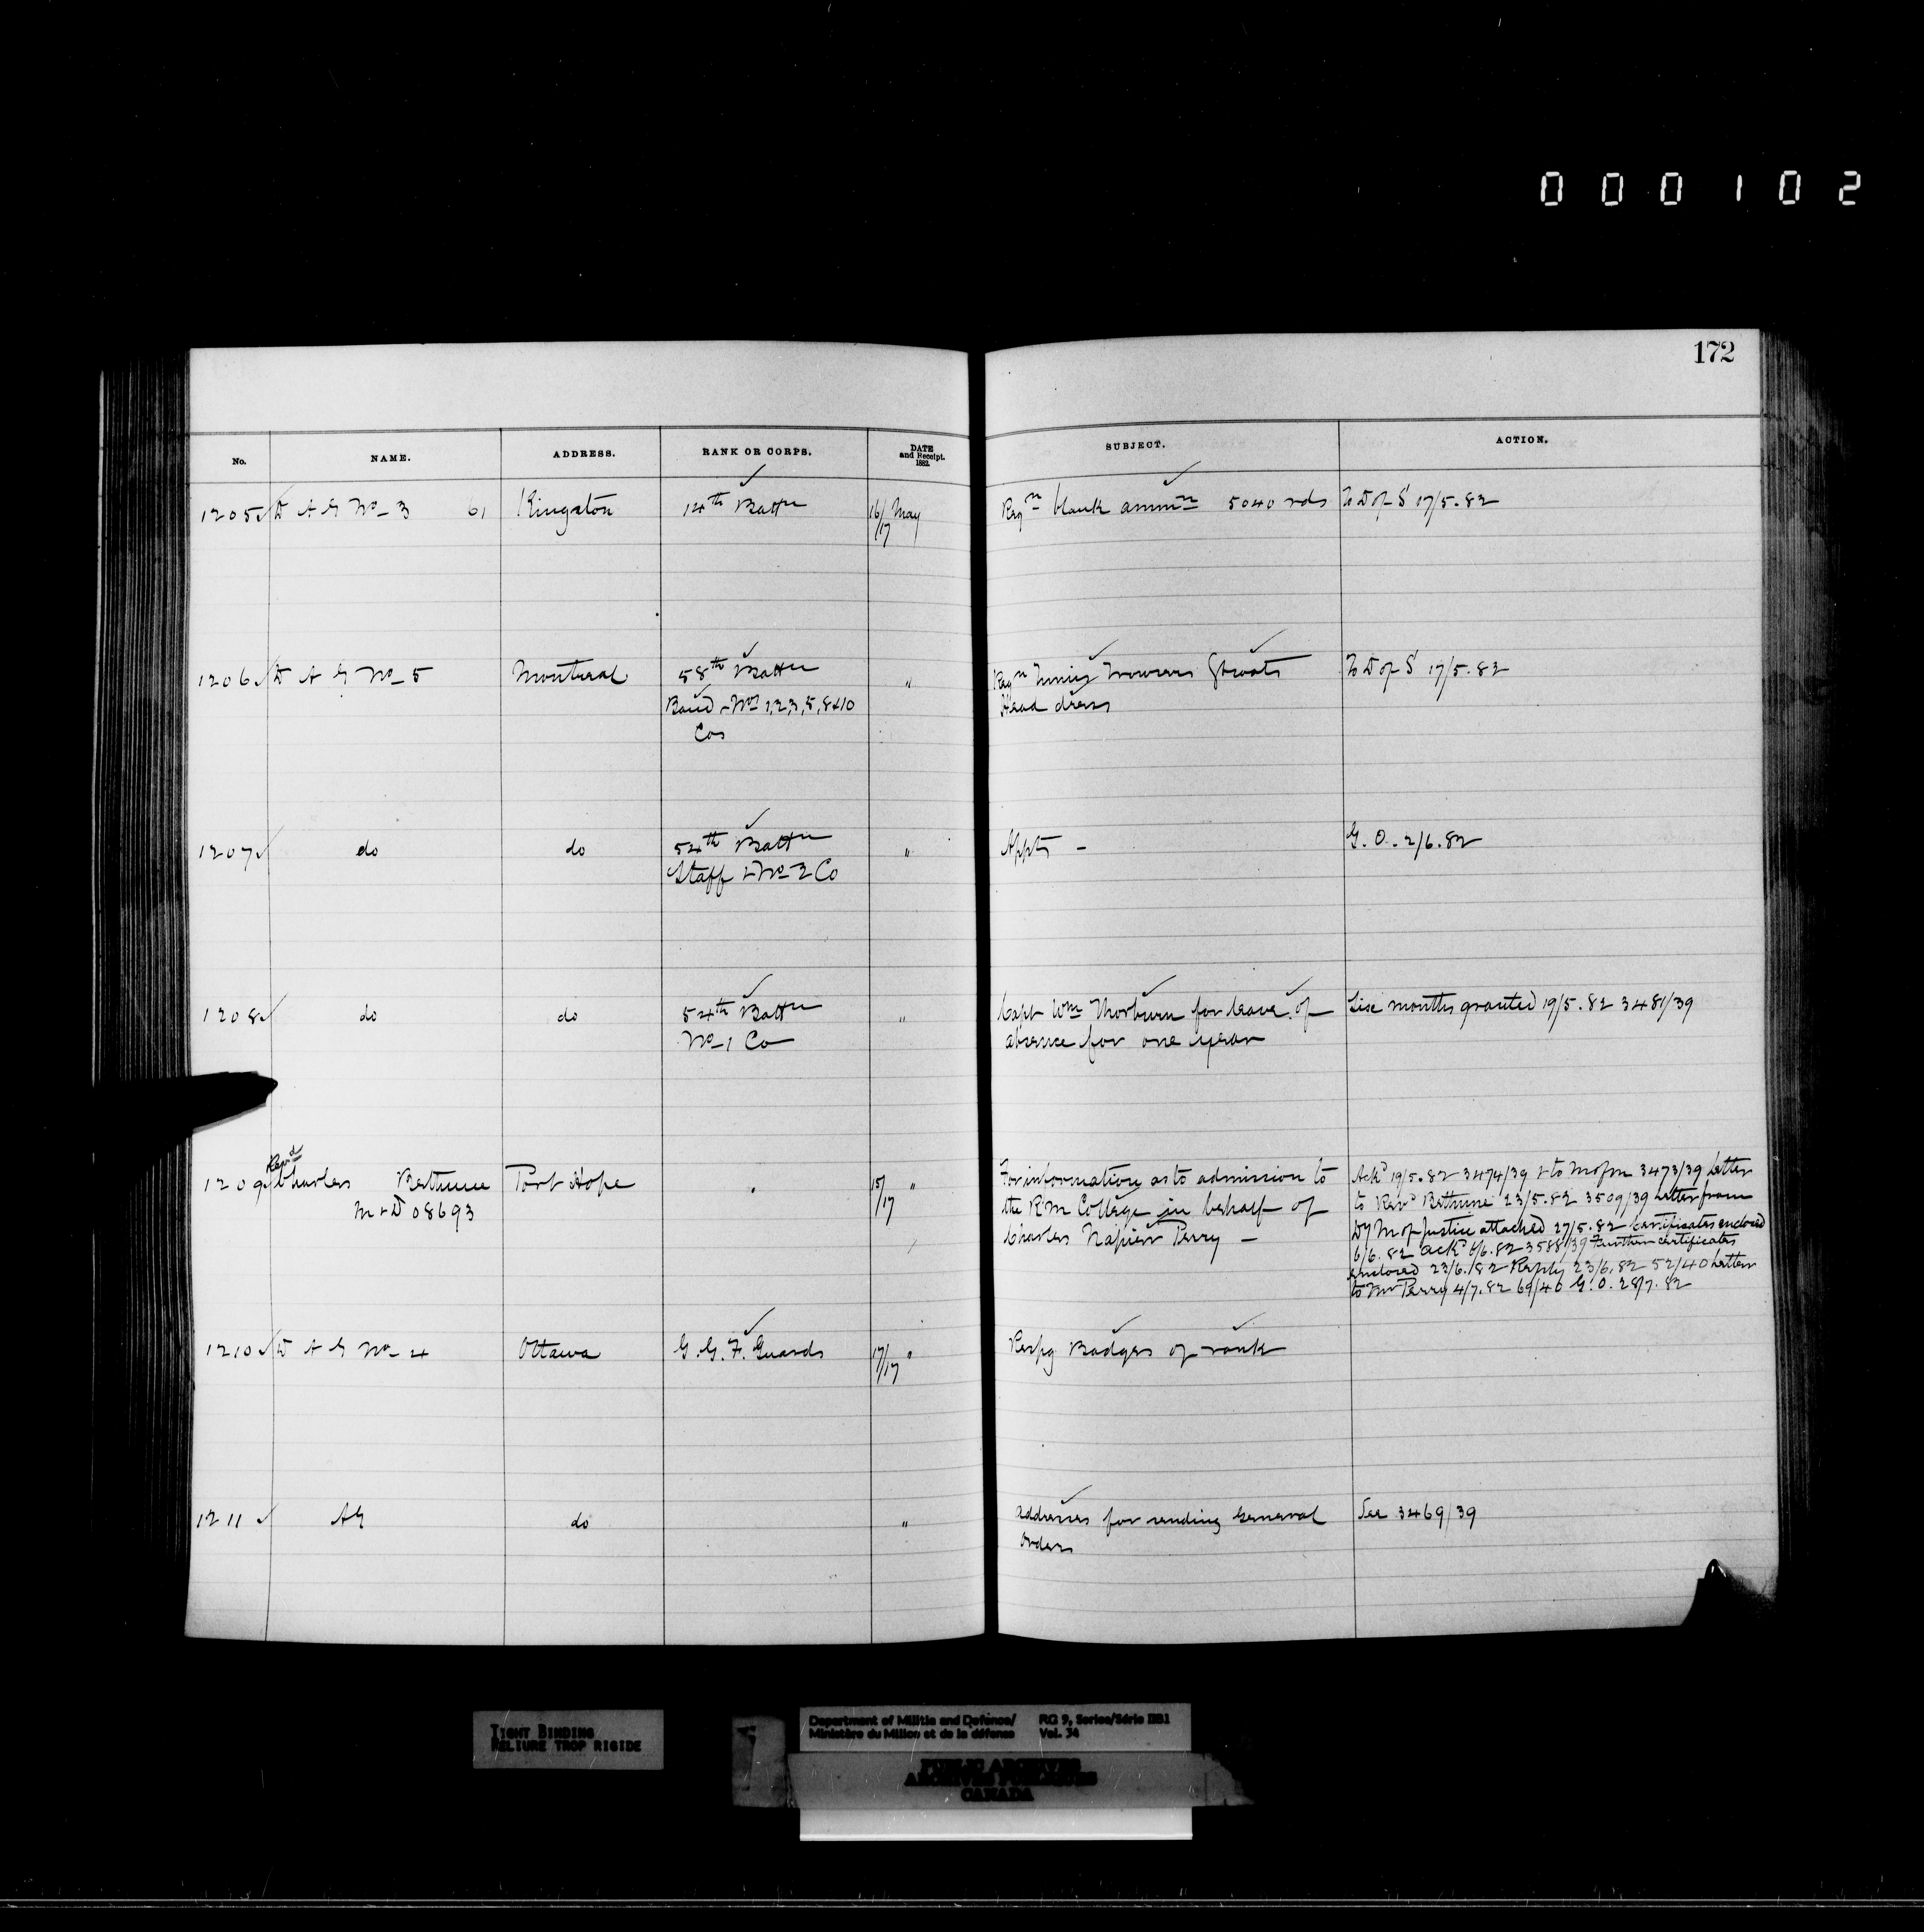 000102
172
No. NAME. ADDRESS. RANK OR CORPS. DATE and Receipt. 1882. SUBJECT. ACTION.
1205 D A G No 3 61 Kingston 14th Battn 16/17 May Reqn blank ammn 5040 rds To D of S 17/5.82
1206 D A G No 5 Montreal 58th Battn " Reqn Tunics Trowsers Gt coats To D of S 17/5.82
Band & Nos 1,2,3,5,8&10 Head dress
Cos
1207 do do 54th Battn " Appts - G.O. 2/6.82
Staff & No 2 Co
1208 do do 54th Battn " Capt Wm Thorburn for leave of Six months granted 19/5.82 3481/39
No 1 Co absence for one year
1209 Revd Charles Bethune Port Hope 15/17 " For information as to admission to Ackd 19/5.82 3474/39 & to M of 3473/39 Letter
M & D 08693 the R M College in behalf of to Revd Bethune 23/5.82 3509/39 Letter from
Charles Napier Perry - Dy M of Justice attached 27/5.82 Certificates enclosed
6/6.82 Ackd 6/6.82 3588/39 Further certificates
enclosed 23/6/82 Reply 23/6.82 52/40 Letter
to Mr Perry 4/7.82 69/40 G.O. 28/7.82
1210 D A G No 4 Ottawa G.G.F. Guards 17/17 " Respg Badges of rank
1211 AG do " Addresses for sending General See 3469/39
Orders
TIGHT BINDING
RELIURE TROP RIGIDE
Department of Militia and Defence/ RG 9, Series/Série IIB1
Ministère du Milice et de la défense Vol. 34
PUBLIC ARCHIVES
ARCHIVES PUBLIQUES
CANADA